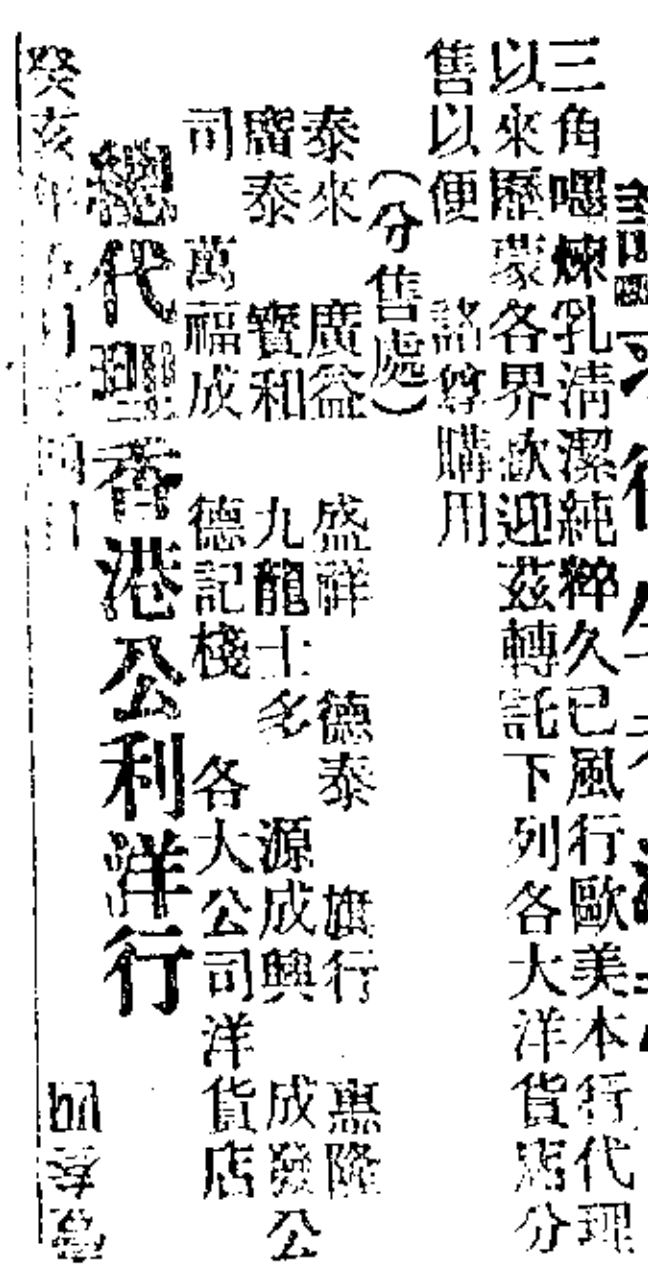 三角嘿煉乳清潔純粹久已風行歐美本行代理
以來歷蒙各界歡迎茲轉託下列各大洋貨店分
售以便 諸尊購用
(分售處)
泰來 廣益 盛祥 德泰 旗行 惠隆
廣泰 寶和 九龍士多 源成興 成發公
司 萬福成 德記棧 各大公司洋貨店
總代理香港公利洋行
癸亥年